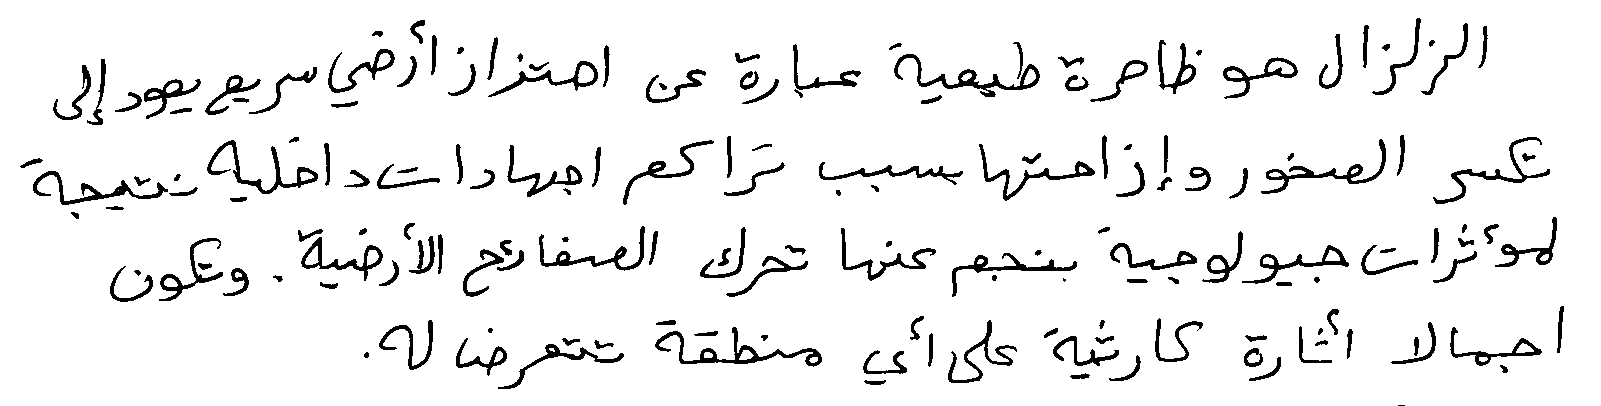 الزلزال هو ظاهرة طبيعية عبارة عن اهتزاز أرضي سريع يعود إلى
تكسر الصخور وإزاحتها بسبب تراكم اجهادات داخلية نتيجة
لمؤثرات جيولوجية ينجم عنها تحرك الصفائح الأرضية. وتكون
اجمالا أثارة كارثية على أي منطقة تتعرض له.